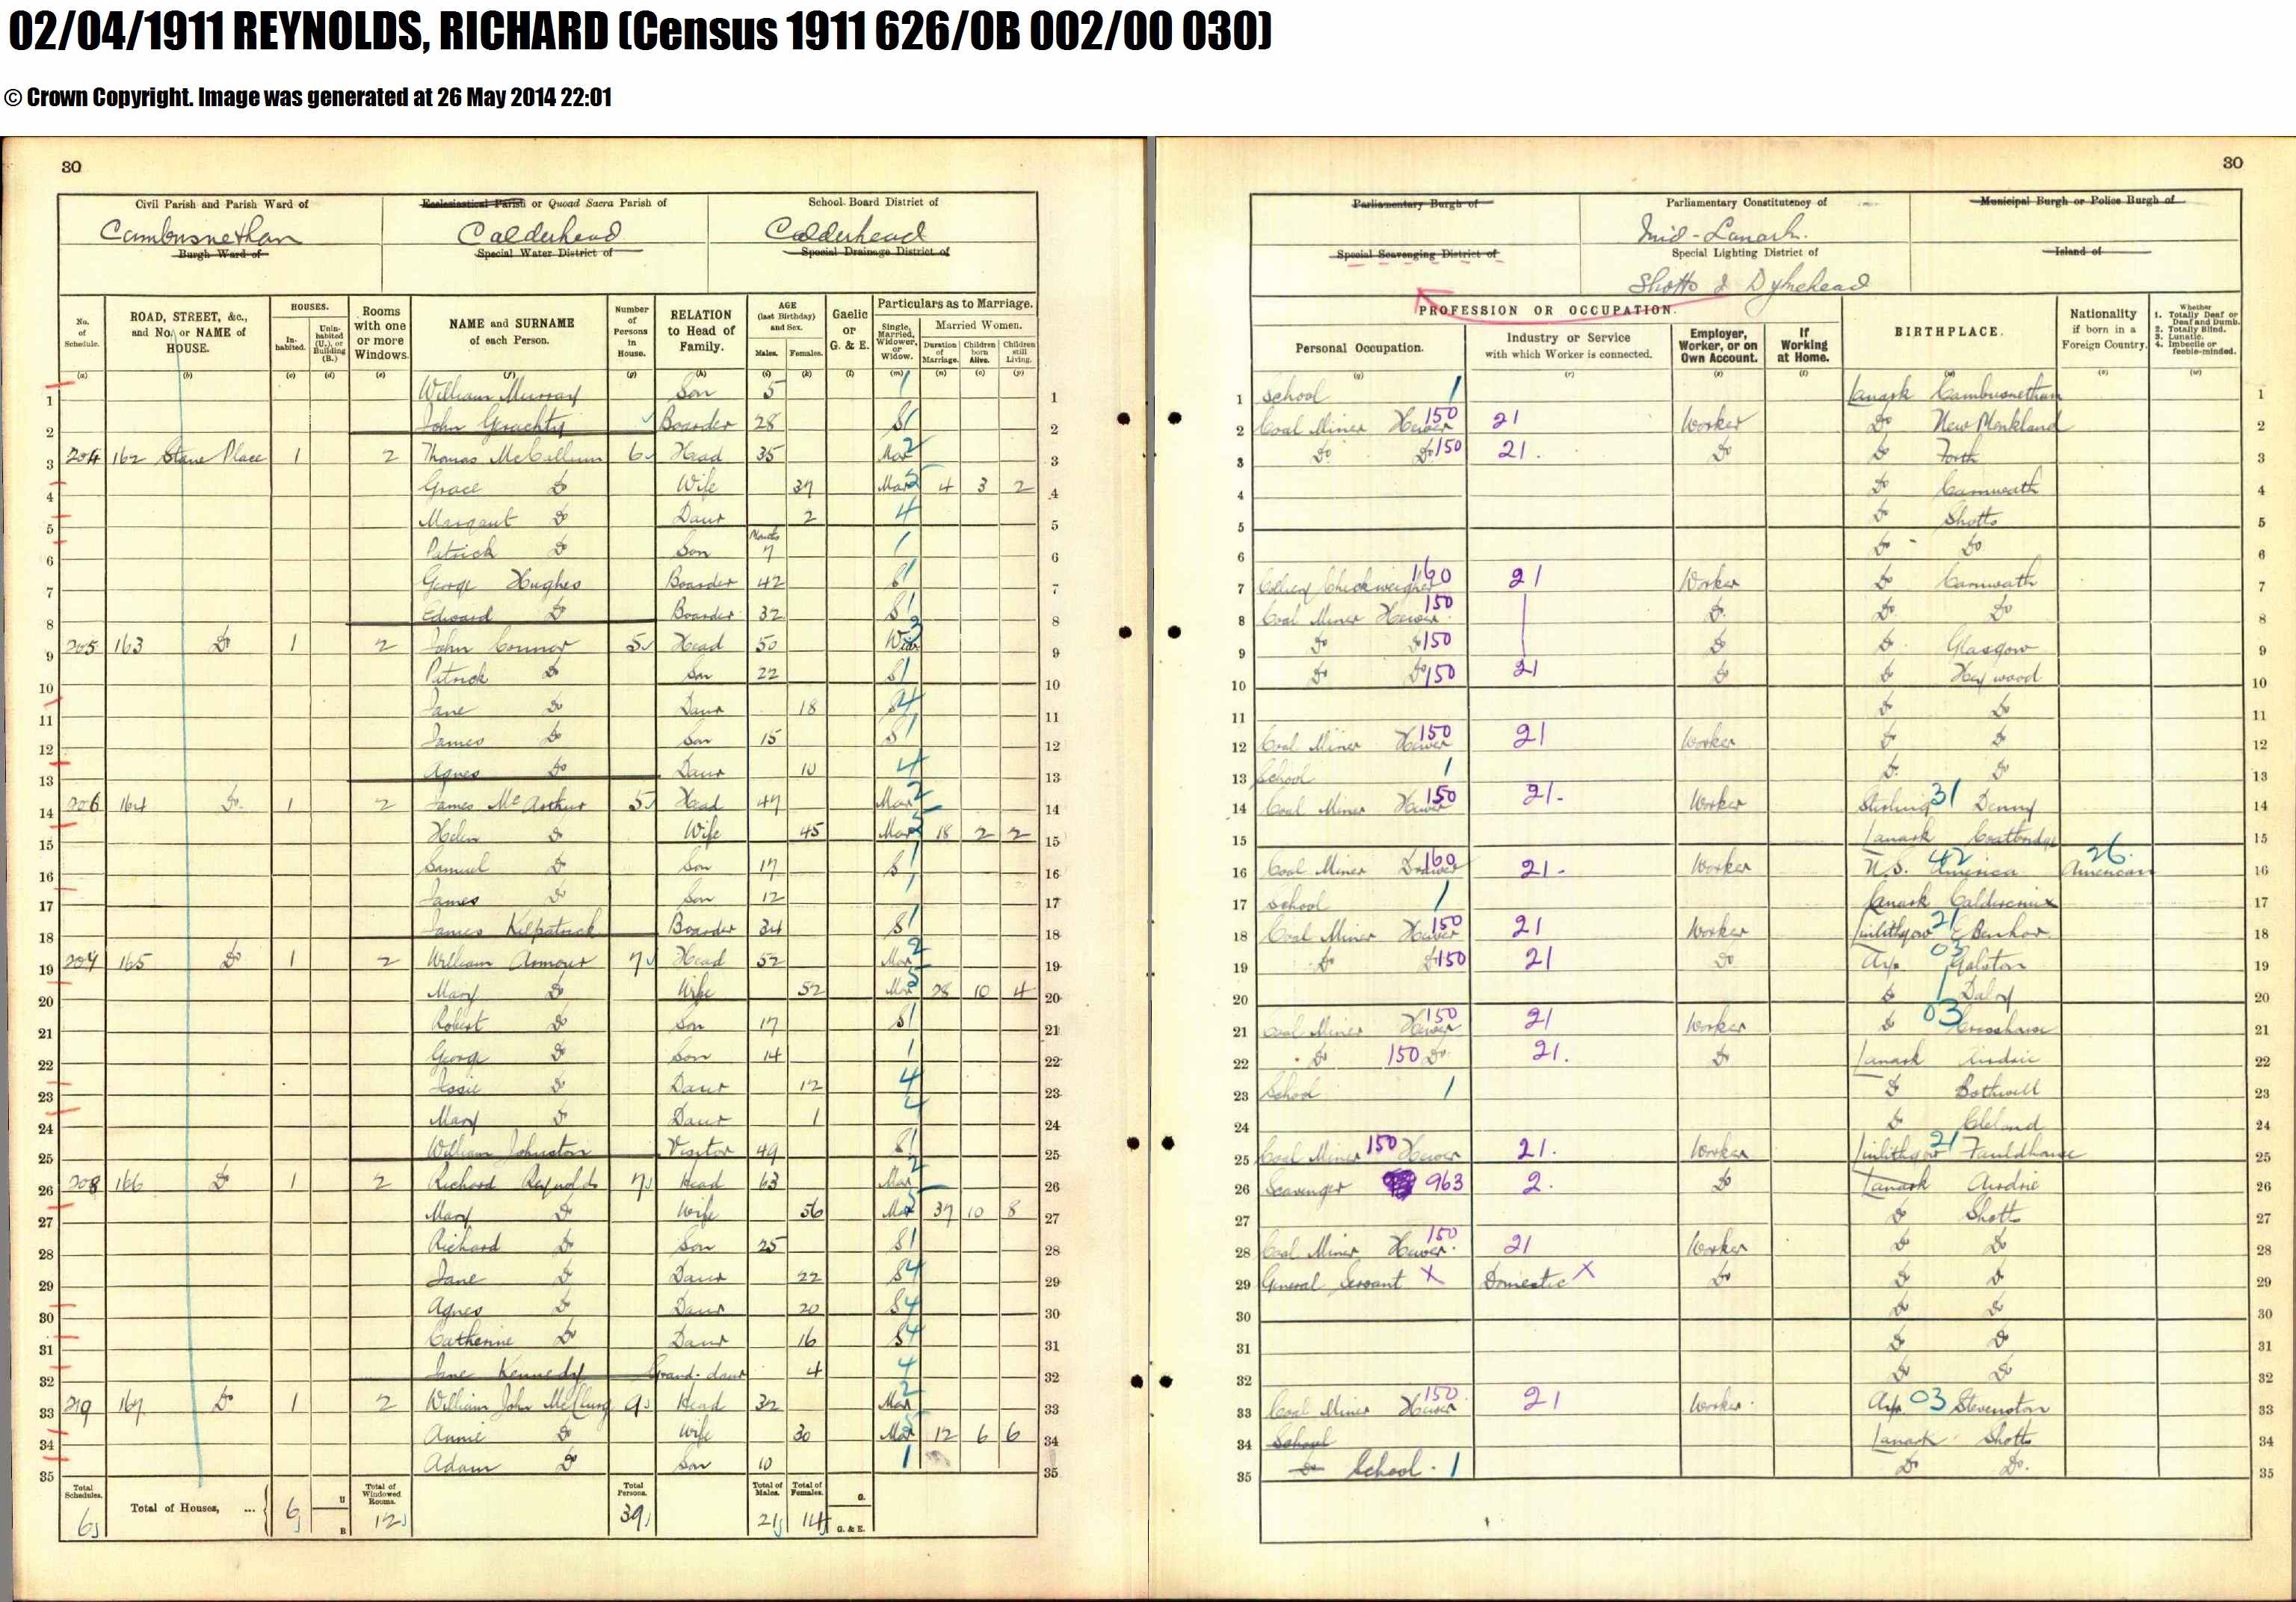 02/04/1911 REYNOLDS, RICHARD (Census 1911 626/0B 002/00 030)
© Crown Copyright. Image was generated at 26 May 2014 22:01
30
30
Civil Parish and Parish Ward of
Cambusnethan
Burgh Ward of
Ecclesiastical Parish or Quoad Sacra Parish of
Calderhead
Special Water District of
School Board District of
Calderhead
Special Drainage District of
Parliamentary Burgh of
Special Scavenging District of
Parliamentary Constitutency of
Mid-Lanark.
Special Lighting District of
Shotts & Dykehead
Municipal Burgh or Police Burgh of
Island of
No. of Schedule.
ROAD, STREET, &c., and No. or NAME of HOUSE.
HOUSES.
In-habited.
Unin-habited (U.), or Building (B.)
Rooms with one or more Windows.
NAME and SURNAME of each Person.
Number of Persons in House.
RELATION to Head of Family.
AGE (last Birthday) and Sex.
Males. Females.
Gaelic or G. & E.
Particulars as to Marriage.
Single, Married, Widower, or Widow.
Married Women.
Duration of Marriage. Children born Alive. Children still Living.
PROFESSION OR OCCUPATION.
Personal Occupation.
Industry or Service with which Worker is connected.
Employer, Worker, or on Own Account.
If Working at Home.
BIRTHPLACE.
Nationality if born in a Foreign Country.
Whether 1. Totally Deaf or Deaf and Dumb. 2. Totally Blind. 3. Lunatic. 4. Imbecile or feeble-minded.
1 William Murray Son 5 1 School 1 Lanark Cambusnethan
2 John Gerachty Boarder 28 S 1 Coal Miner Hewer 150 21 Worker Do New Monkland
3 204 162 Stane Place 1 2 Thomas McCallum 6 Head 35 Mar 2 Do Do 150 21. Do Do Forth
4 Grace Do Wife 37 Mar 4 3 2 Do Carnwath
5 Margaret Do Daur 2 4 Do Shotts
6 Patrick Do Son Months 7 1 Do Do
7 George Hughes Boarder 42 S 1 Colliery Checkweigher 160 21 Worker Do Carnwath
8 Edward Do Boarder 32 S 1 Coal Miner Hewer 150 Do Do Do
9 205 163 Do 1 2 John Connor 5 Head 50 Wid Do Do 150 Do Do Glasgow
10 Patrick Do Son 22 S 1 Do Do 150 21 Do Do Haywood
11 Jane Do Daur 18 S 4 Do Do
12 James Do Son 15 S 1 Coal Miner Hewer 150 21 Worker Do Do
13 Agnes Do Daur 10 4 School 1 Do Do
14 206 164 Do 1 2 James McArthur 5 Head 47 Mar 2 Coal Miner Hewer 150 21. Worker Stirling 31 Denny
15 Helen Do Wife 45 Mar 18 2 2 Lanark Coatbridge
16 Samuel Do Son 17 S 1 Coal Miner Drawer 160 21. Worker U.S. America 42 American 26.
17 James Do Son 12 1 School 1 Lanark Caldercruix
18 James Kilpatrick Boarder 34 S 1 Coal Miner Hewer 150 21 Worker Linlithgow 21 Benhar
19 207 165 Do 1 2 William Armour 7 Head 52 Mar 2 Do Do 150 21 Do Ayr 03 Galston
20 Mary Do Wife 52 Mar 28 10 4 Do Dalry
21 Robert Do Son 17 S 1 Coal Miner Hewer 150 21 Worker Do 03
22 George Do Son 14 1 Do 150 Do 21. Do Lanark Airdrie
23 Jessie Do Daur 12 4 School 1 Do Bothwell
24 Mary Do Daur 1 4 Do Cleland
25 William Johnston Visitor 49 S 1 Coal Miner 150 Hewer 21. Worker Linlithgow 21 Fauldhouse
26 208 166 Do 1 2 Richard Reynolds 7 Head 63 Mar 2 Scavenger 963 2. Do Lanark Airdrie
27 Mary Do Wife 56 Mar 37 10 8 Do Shotts
28 Richard Do Son 25 S 1 Coal Miner Hewer 150 21 Worker Do Do
29 Jane Do Daur 22 S 4 General Servant X Domestic X Do Do Do
30 Agnes Do Daur 20 S 4 Do Do
31 Catherine Do Daur 16 S 4 Do Do
32 Jane Kennedy Grand-daur 4 4 Do Do
33 219 167 Do 1 2 William John McClung 9 Head 32 Mar 2 Coal Miner Hewer 150 21 Worker Ayr 03 Stevenston
34 Annie Do Wife 30 Mar 12 6 6 School Lanark Shotts
35 Adam Do Son 10 1 Do School 1 Do Do.
Total Schedules. 6
Total of Houses, ... 6 U B
Total of Windowed Rooms. 12
Total Persons. 39
Total of Males. 21
Total of Females. 14
G.
G. & E.